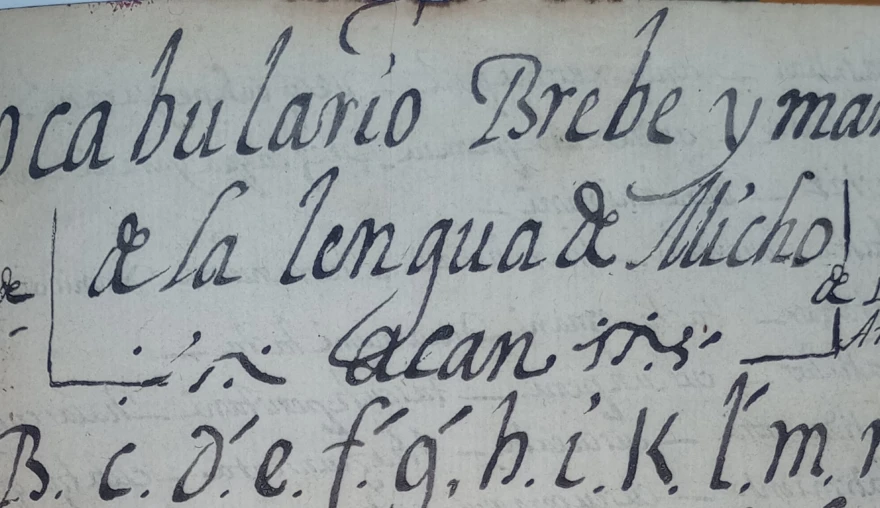 ocabulario Brebe y man
de la lengua de Micho
de
acan
B. c. d. e. f. g. h. i. K. l. m.